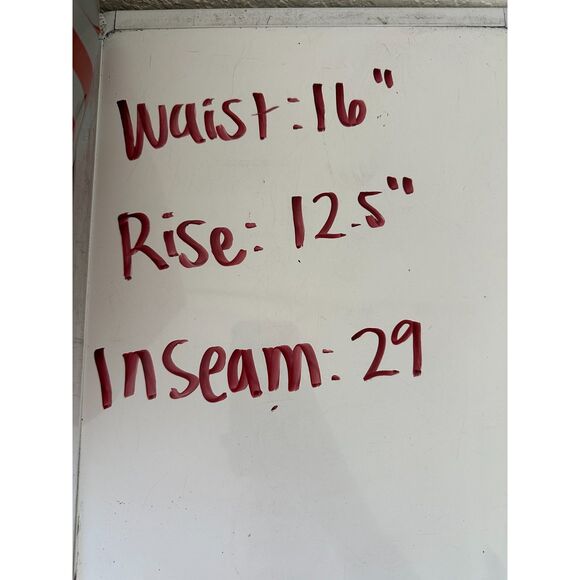 Waist: 16"
Rise: 12.5"
Inseam: 29